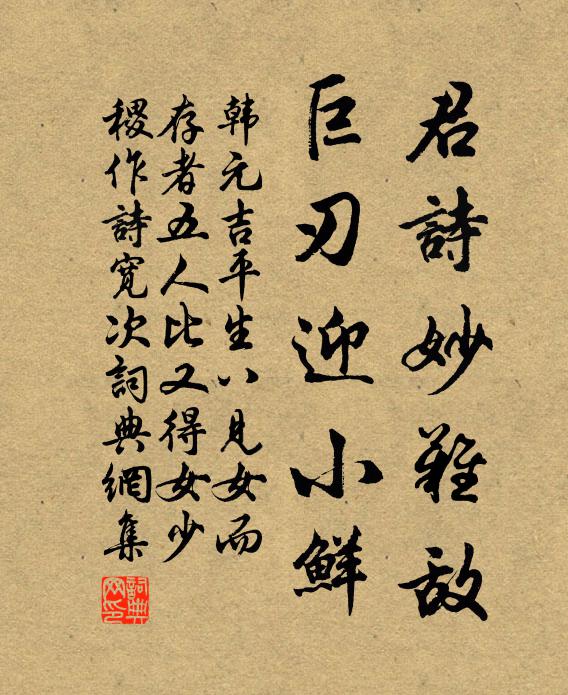 君詩妙難敌
巨刃迎小鮮
韩元吉平生八見女而
存者五人比又得女少
稷作詩寬次詞典網集
詞典
网印